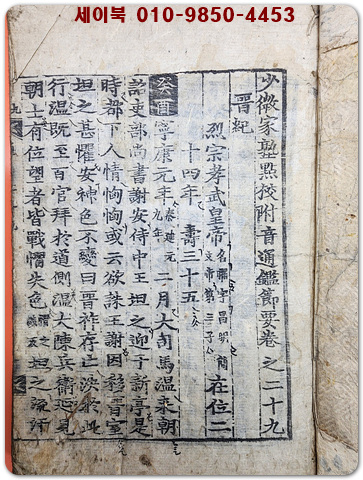 세이북 010-9850-4453
少微家塾點校附音通鑑節要卷之二十九
晋紀
烈宗孝武皇帝 名曜字昌明簡文帝第三子 在位二
十四年 壽三十五
癸酉 寧康元年 秦建元九年 二月大司馬温來朝
詔吏部尚書謝安侍中王坦之迎于新亭是
時都下人情恟恟或云欲誅王謝因移晋室
坦之甚懼安神色不變曰晋祚存亡决於此
行温旣至百官拜於道側温大陳兵衛延見
朝士有位望者皆戰慴失色 坦之流汗